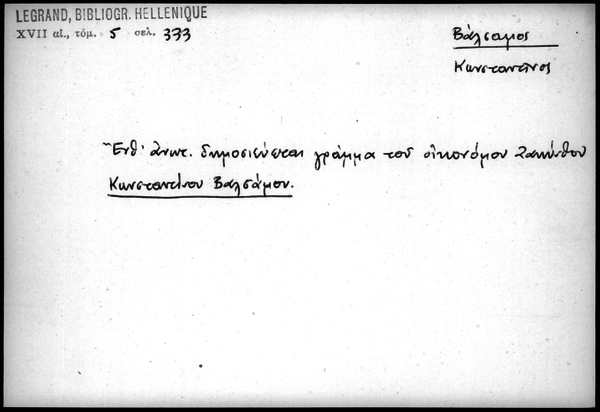 LEGRAND, BIBLIOGR. HELLENIQUE
XVII αἰ., τόμ. 5 σελ. 333
Βάλσαμος
Κωνσταντῖνος
Ἔνθ' ἀνωτ. δημοσιεύεται γράμμα τοῦ οἰκονόμου Ζακύνθου
Κωνσταντίνου Βαλσάμου.